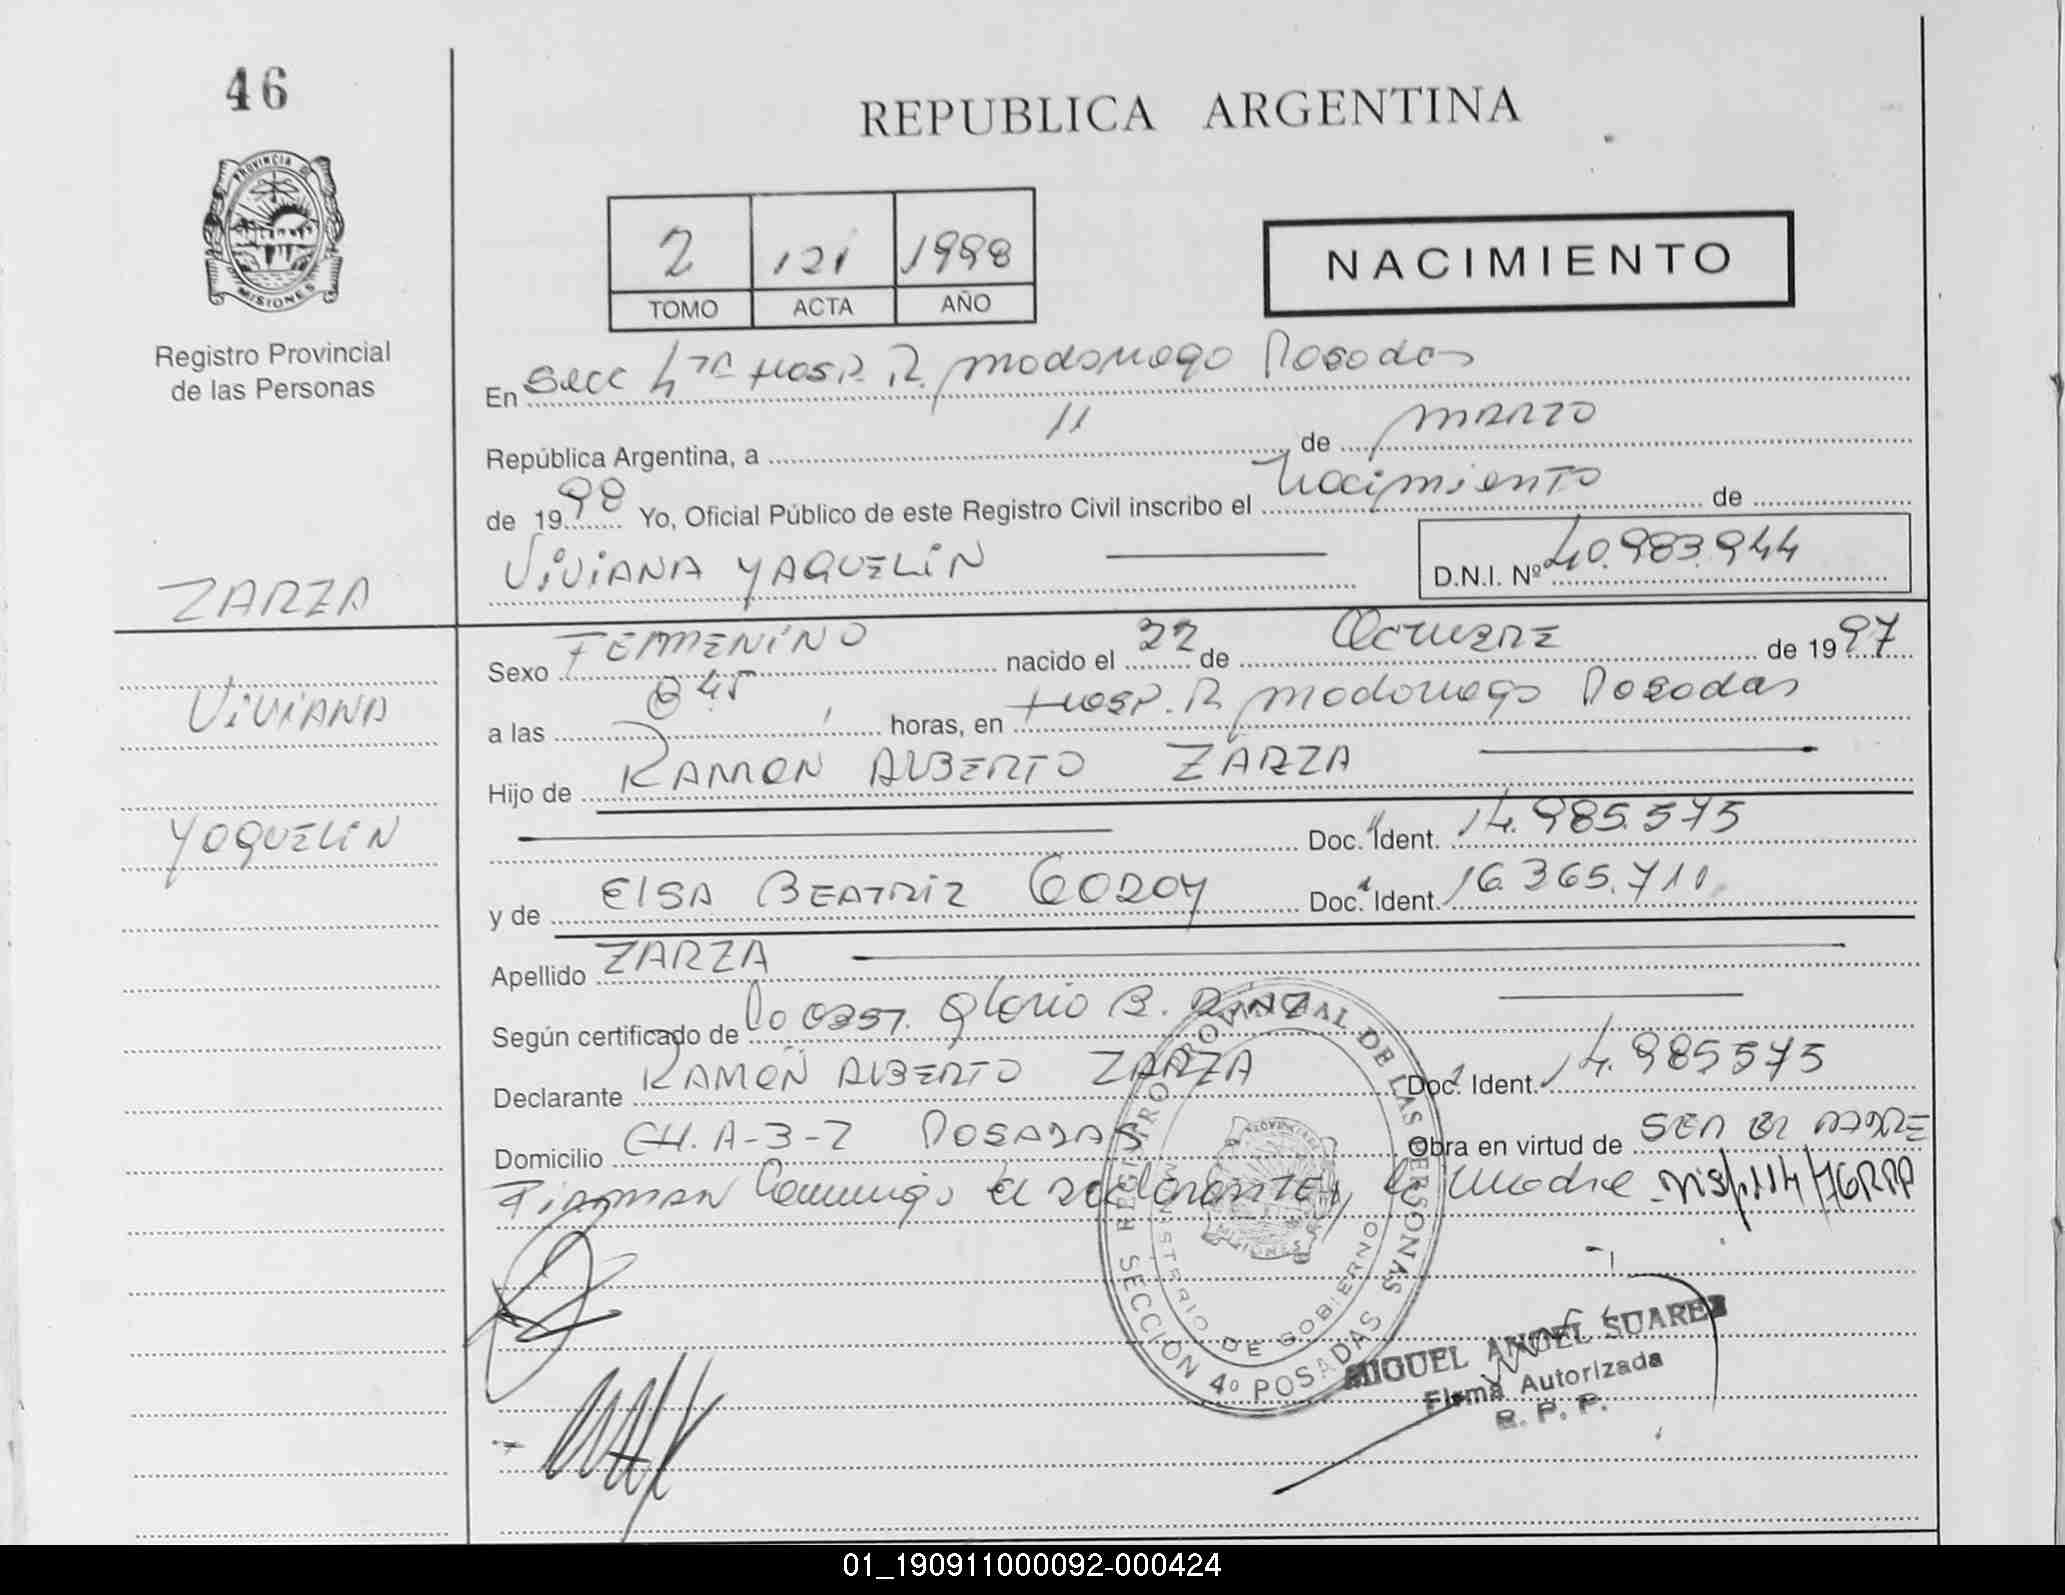 46
REPUBLICA ARGENTINA
PROVINCIA DE
MISIONES
Registro Provincial
de las Personas
2 121 1998
TOMO ACTA AÑO
NACIMIENTO
En Secc 4TA HOSP. R. Madariaga Posadas
República Argentina, a 11 de MARZO
de 1998 Yo, Oficial Público de este Registro Civil inscribo el Nacimiento de
ViViANA YAQUELiN
D.N.I. Nº 40.983.944
ZARZA
ViViANA
YAQUELiN
Sexo FEMMENiNO nacido el 22 de OCTUBRE de 1997
a las 8 45 horas, en HOSP. R. Madariaga Posadas
Hijo de RAMON ALBERTO ZARZA
Doc. Ident. 14.985.575
y de ELSA BEATRiZ GODOY Doc. Ident. 16.365.711
Apellido ZARZA
Según certificado de la OBST. Gloria B.
Declarante RAMON ALBERTO ZARZA Doc. Ident. 14.985575
Domicilio CH. A-3-2 POSADAS Obra en virtud de SER EL PADRE
FiRMAN Conmigo el declarante y la madre Disp. 114/76RPP
REGISTRO PROVINCIAL DE LAS PERSONAS
MINISTERIO DE GOBIERNO
SECCION 4º POSADAS
MIGUEL ANGEL SUAREZ
Firma Autorizada
R. P. P.
01_190911000092-000424